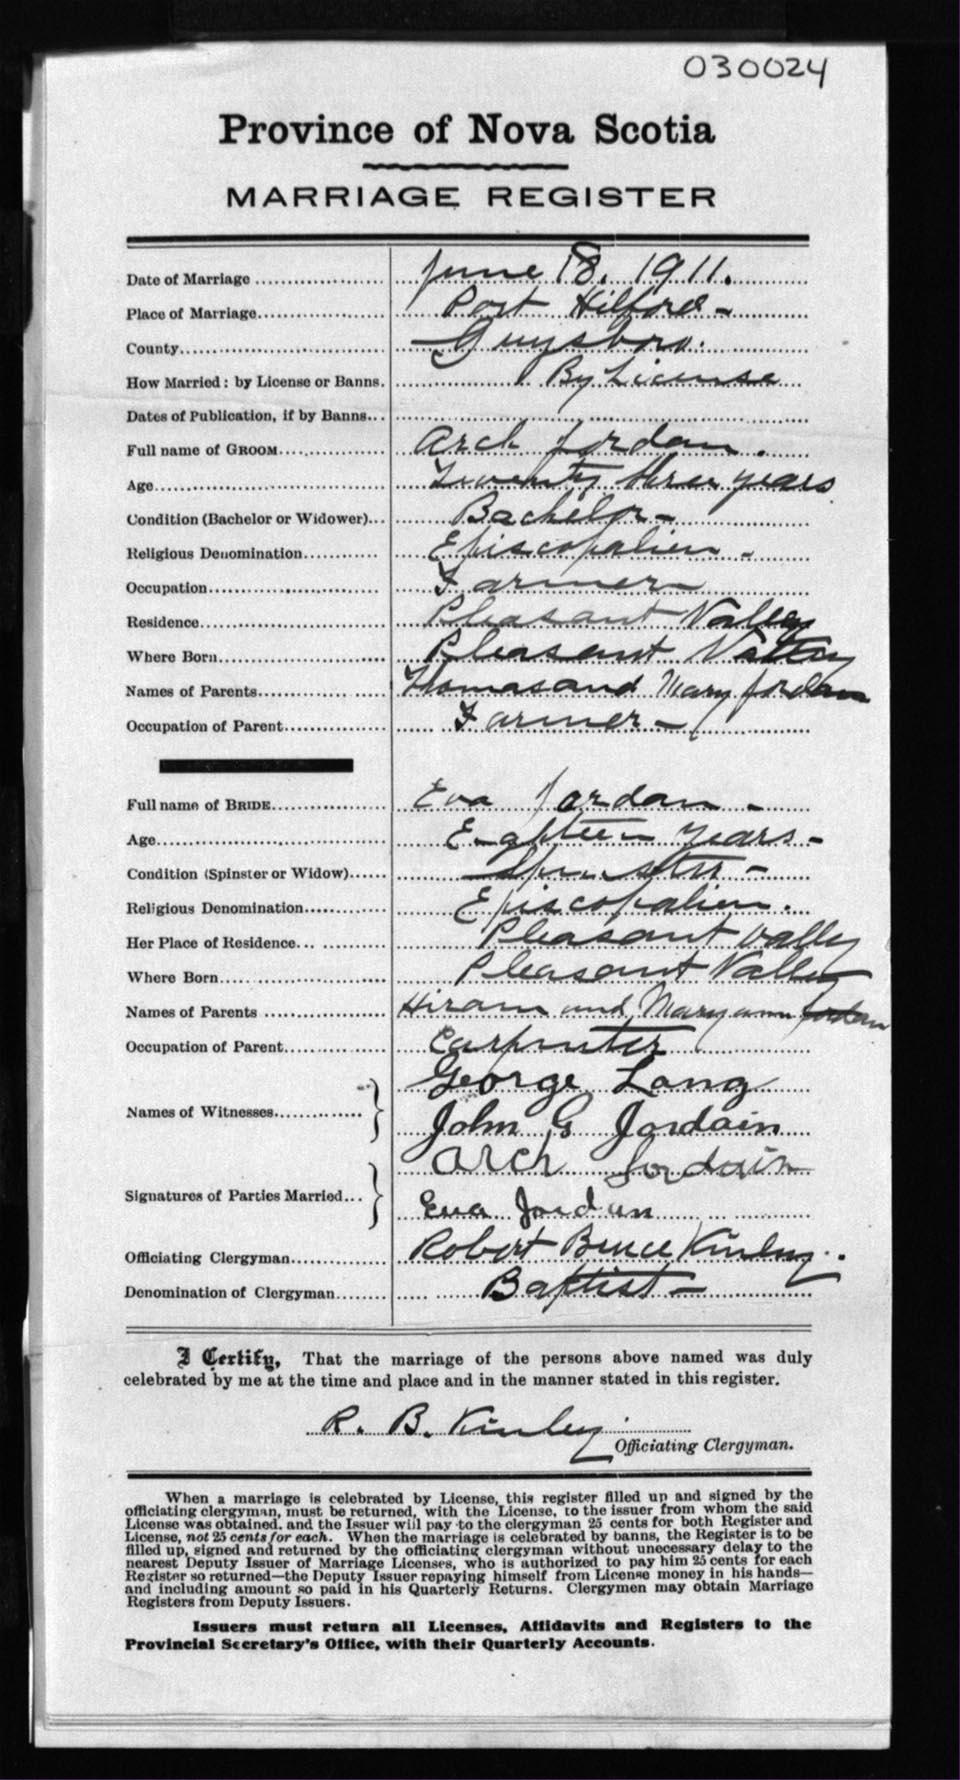 030024
Province of Nova Scotia
MARRIAGE REGISTER
Date of Marriage June 18. 1911.
Place of Marriage Port Hilford -
County Guysboro.
How Married: by License or Banns. By License
Dates of Publication, if by Banns
Full name of GROOM Arch Jordan.
Age Twenty three years
Condition (Bachelor or Widower) Bachelor -
Religious Denomination Episcopalien -
Occupation Farmer
Residence Pleasant Valley
Where Born Pleasant Valley
Names of Parents Thomas and Mary Jordan
Occupation of Parent Farmer -
Full name of BRIDE Eva Jordan -
Age Eighteen years -
Condition (Spinster or Widow) Spinster -
Religious Denomination Episcopalien.
Her Place of Residence Pleasant Valley
Where Born Pleasant Valley
Names of Parents Hiram and Mary ann Jordan
Occupation of Parent Carpenter
Names of Witnesses George Lang
John G Jordain
Signatures of Parties Married Arch Jordain
Eva Jordan
Officiating Clergyman Robert Bruce Kinley.
Denomination of Clergyman Baptist -
I Certify, That the marriage of the persons above named was duly
celebrated by me at the time and place and in the manner stated in this register.
R. B. Kinley
Officiating Clergyman.
When a marriage is celebrated by License, this register filled up and signed by the
officiating clergyman, must be returned, with the License, to the issuer from whom the said
License was obtained, and the Issuer will pay to the clergyman 25 cents for both Register and
License, not 25 cents for each. When the marriage is celebrated by banns, the Register is to be
filled up, signed and returned by the officiating clergyman without unnecessary delay to the
nearest Deputy Issuer of Marriage Licenses, who is authorized to pay him 25 cents for each
Register so returned—the Deputy Issuer repaying himself from License money in his hands—
and including amount so paid in his Quarterly Returns. Clergymen may obtain Marriage
Registers from Deputy Issuers.
Issuers must return all Licenses, Affidavits and Registers to the
Provincial Secretary's Office, with their Quarterly Accounts.